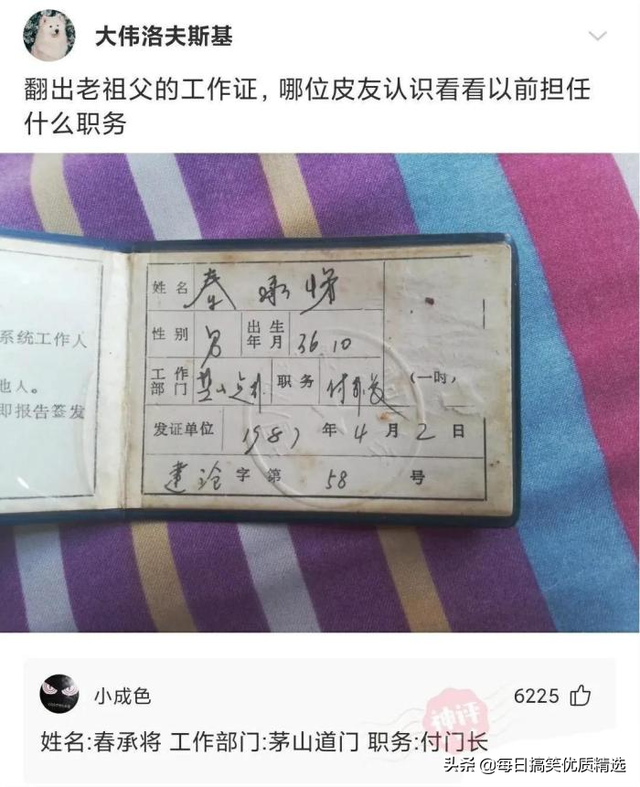 大伟洛夫斯基
翻出老祖父的工作证，哪位皮友认识看看以前担任
什么职务
系统工作人
他人。
即报告签发
姓名
性别 男 出生年月 36.10
工作部门 职务 （一吋）
发证单位 1987年4月2日
字第 58 号
小成色
6225
神评
姓名:春承将 工作部门:茅山道门 职务:付门长
头条 @每日搞笑优质精选